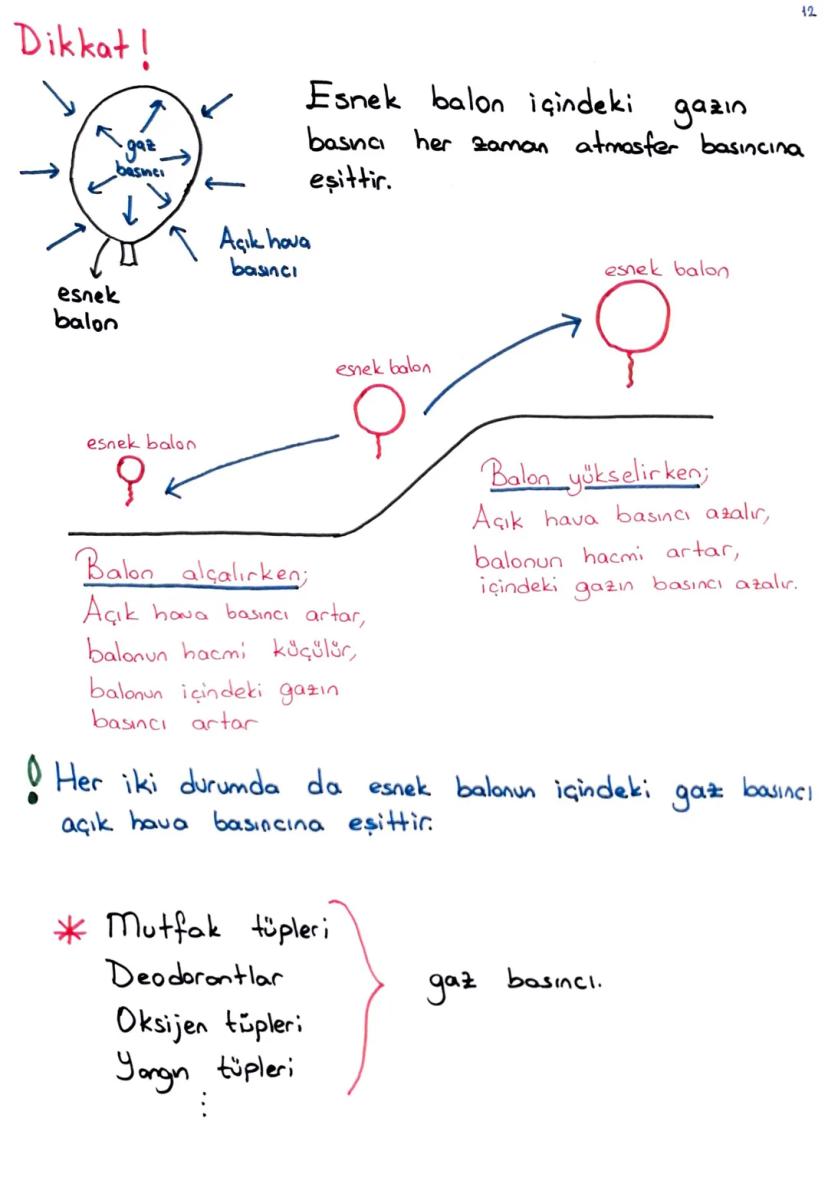 12
Dikkat!
Esnek balon içindeki gazın
basıncı her zaman atmosfer basıncına
eşittir.
gaz
basıncı
Açık hava
basıncı
esnek
balon
esnek balon
esnek balon
esnek balon
Balon yükselirken;
Açık hava basıncı azalır,
balonun hacmi artar,
içindeki gazın basıncı azalır.
Balon alçalırken;
Açık hava basıncı artar,
balonun hacmi küçülür,
balonun içindeki gazın
basıncı artar
! Her iki durumda da esnek balonun içindeki gaz basıncı
açık hava basıncına eşittir.
* Mutfak tüpleri
Deodorantlar
Oksijen tüpleri
Yangın tüpleri
⋮
gaz basıncı.